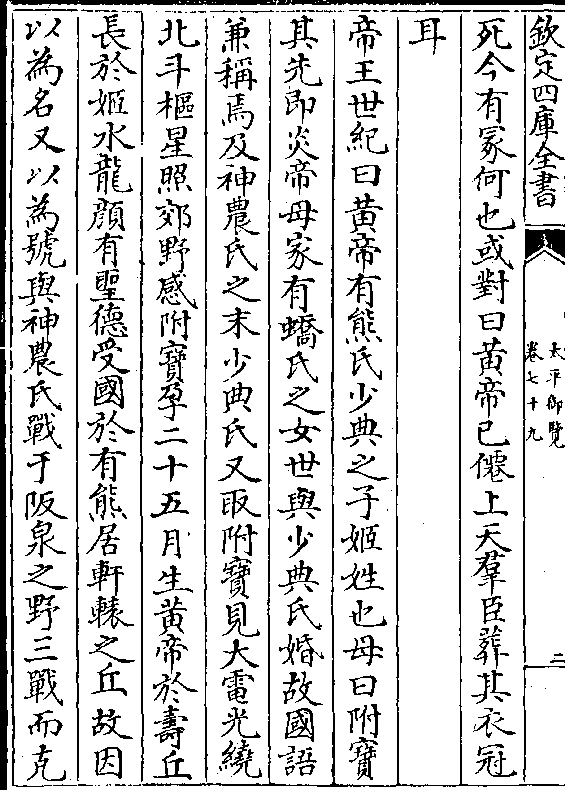 欽定四庫全書
太平御覽
卷七十九
二
死今有冡何也或對曰黃帝已僊上天羣臣葬其衣冠
耳
帝王世紀曰黃帝有熊氏少典之子姬姓也母曰附寶
其先即炎帝母家有蟜氏之女世與少典氏婚故國語
兼稱焉及神農氏之末少典氏又取附寶見大電光繞
北斗樞星照郊野感附寶孕二十五月生黃帝於壽丘
長於姬水龍顔有聖德受國於有熊居軒轅之丘故因
以為名又以為號與神農氏戰于阪泉之野三戰而克